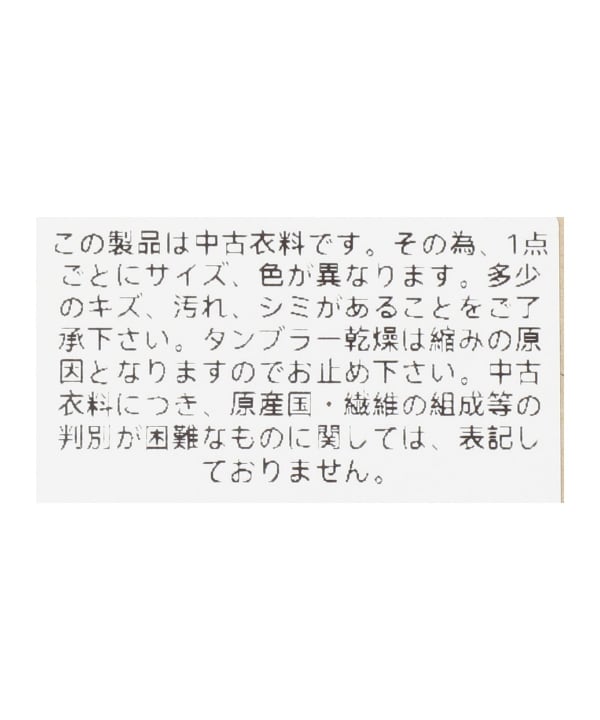 この製品は中古衣料です。その為、1点
ごとにサイズ、色が異なります。多少
のキズ、汚れ、シミがあることをご了
承下さい。タンブラー乾燥は縮みの原
因となりますのでお止め下さい。中古
衣料につき、原産国・繊維の組成等の
判別が困難なものに関しては、表記し
ておりません。